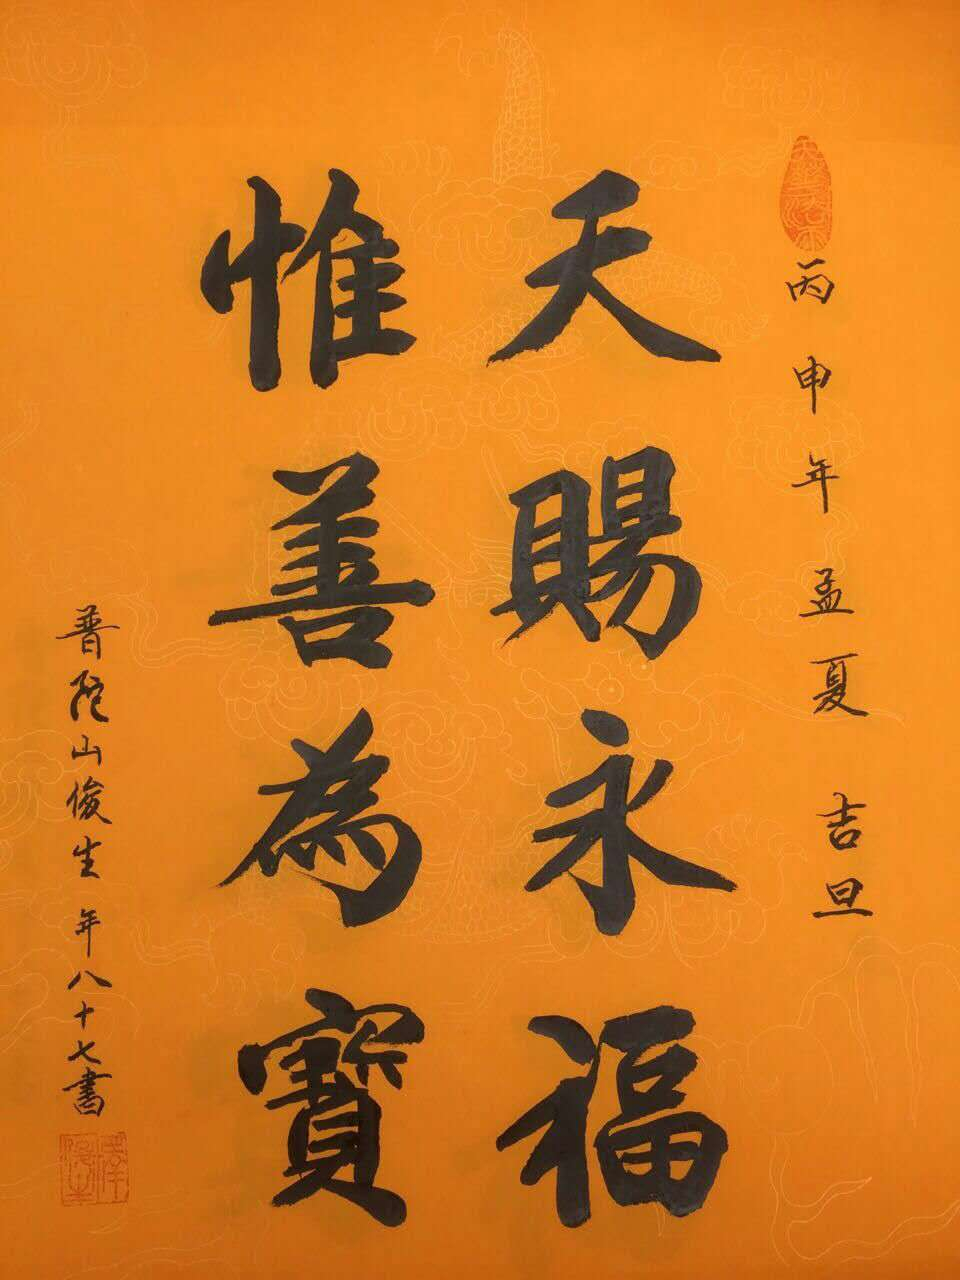 丙申年孟夏吉旦
天賜永福
惟善為寶
普陀山俊生年八十七書